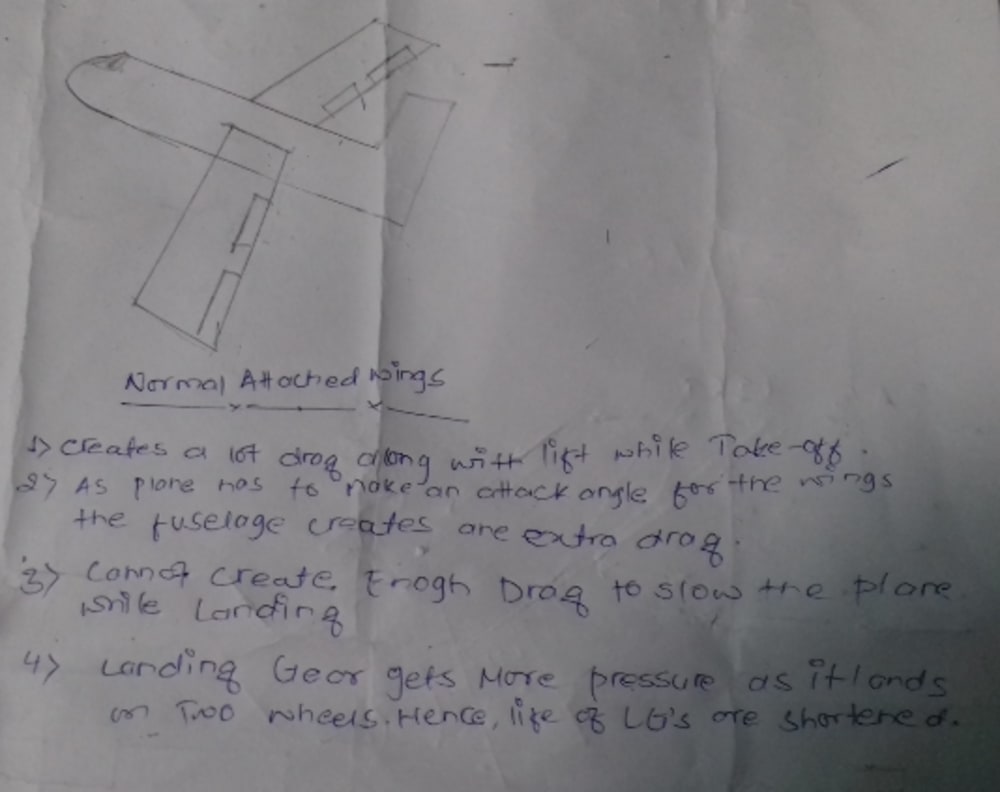 Normal Attached Wings
1) Creates a lot drag along with lift while Take-off.
2) As plane has to make an attack angle for the wings
the fuselage creates are extra drag.
3) Cannot create Enogh Drag to slow the plane
while Landing
4) Landing Gear gets More pressure as it lands
on Two wheels. Hence, life of LG's are shortened.